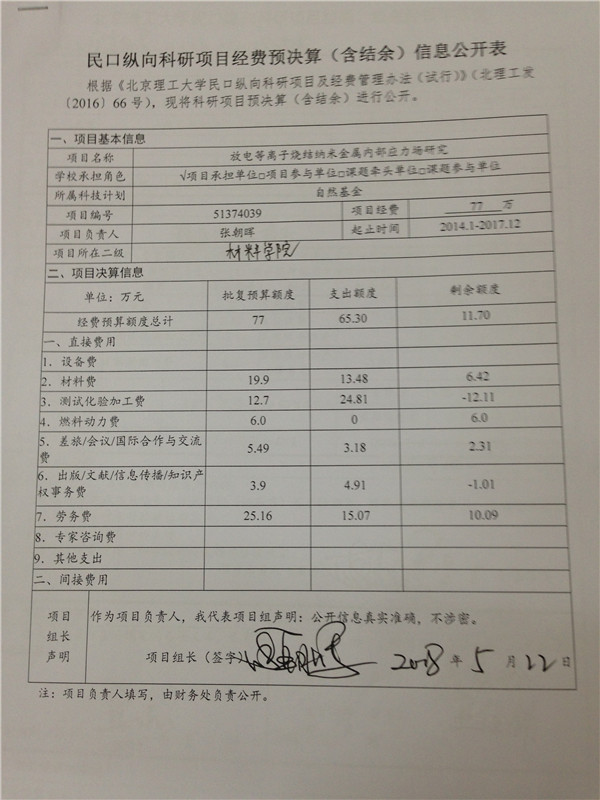 民口纵向科研项目经费预决算（含结余）信息公开表
根据《北京理工大学民口纵向科研项目及经费管理办法（试行）》（北理工发
〔2016〕66号），现将科研项目预决算（含结余）进行公开。
一、项目基本信息
项目名称 放电等离子烧结纳米金属内部应力场研究
学校承担角色 √项目承担单位□项目参与单位□课题牵头单位□课题参与单位
所属科技计划 自然基金
项目编号 51374039 项目经费 77 万
项目负责人 张朝晖 起止时间 2014.1-2017.12
项目所在二级 材料学院
二、项目决算信息
单位：万元 批复预算额度 支出额度 剩余额度
经费预算额度总计 77 65.30 11.70
一、直接费用
1. 设备费
2. 材料费 19.9 13.48 6.42
3. 测试化验加工费 12.7 24.81 -12.11
4. 燃料动力费 6.0 0 6.0
5. 差旅/会议/国际合作与交流
费 5.49 3.18 2.31
6. 出版/文献/信息传播/知识产
权事务费 3.9 4.91 -1.01
7. 劳务费 25.16 15.07 10.09
8. 专家咨询费
9. 其他支出
二、间接费用
项目
组长
声明
作为项目负责人，我代表项目组声明：公开信息真实准确，不涉密。
项目组长（签字） 2018年5月22日
注：项目负责人填写，由财务处负责公开。